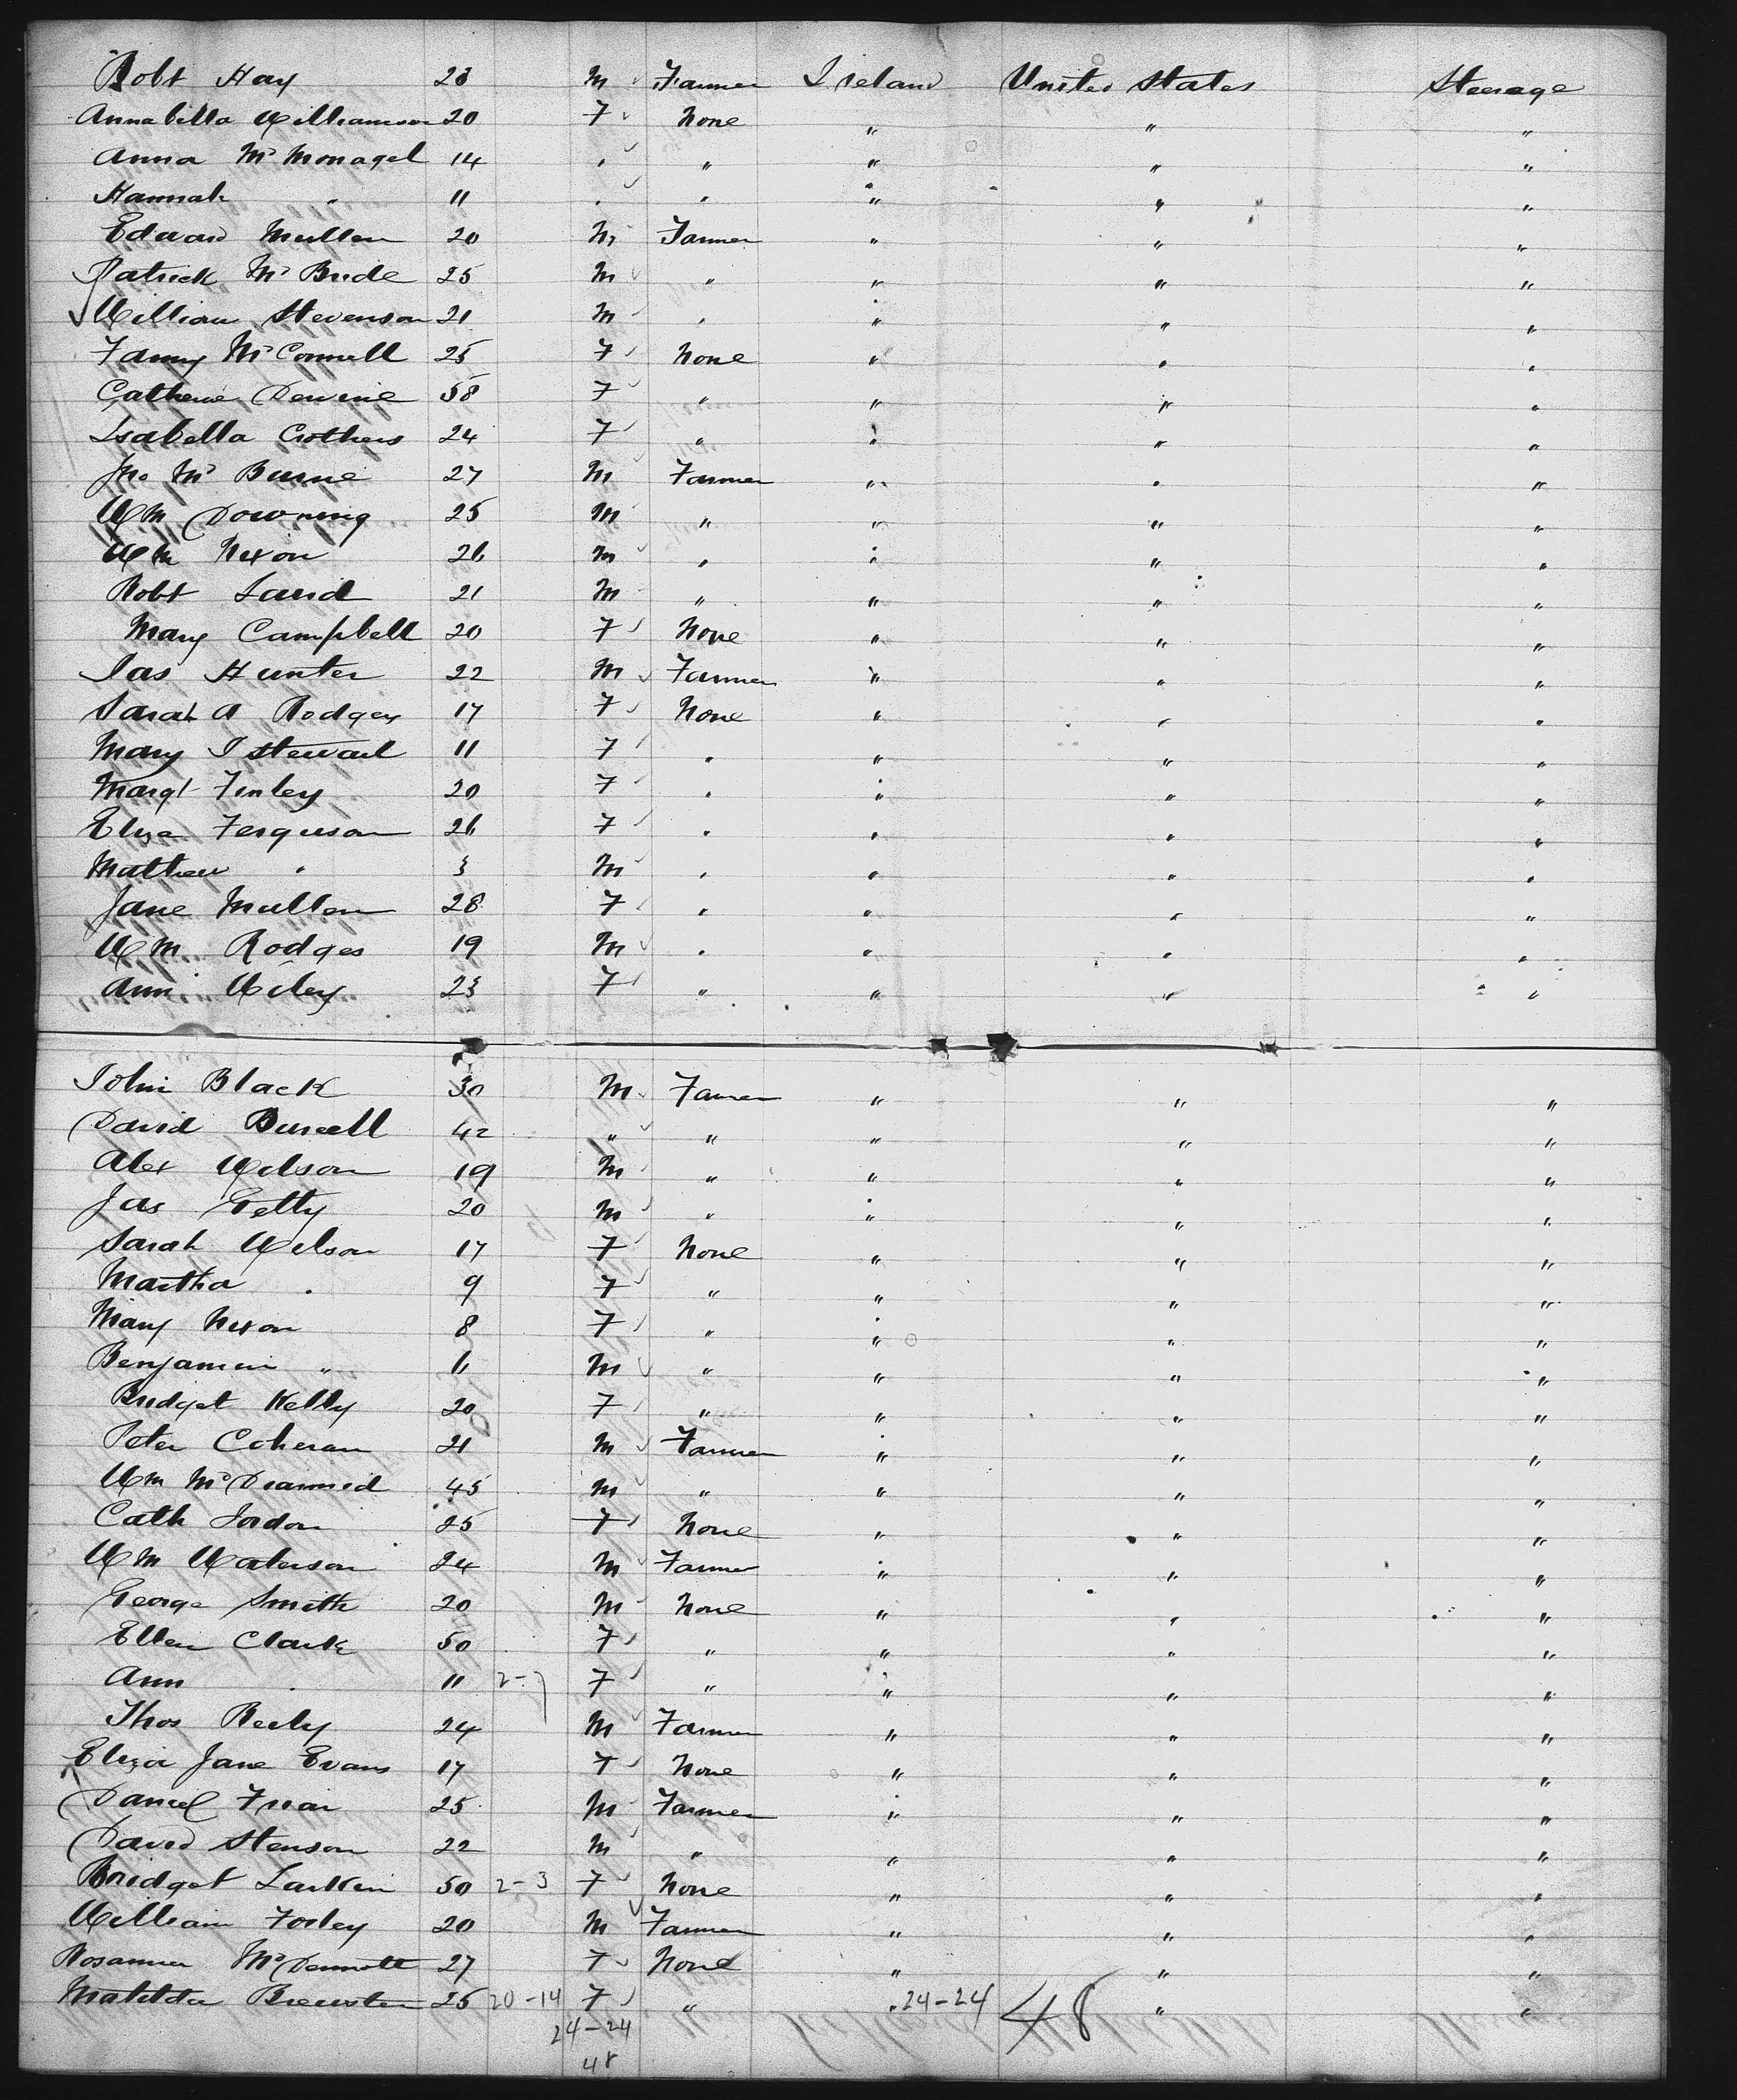 Robt Hay 23 M Farmer Ireland United States Steerage
Annabella Williamson 20 F None " " "
Anna McMonagel 14 " " " " "
Hannah " 11 " " " " "
Edward Mullen 20 M Farmer " " "
Patrick McBride 25 M " " " "
William Stevenson 21 M " " " "
Fanny McConnell 25 F None " " "
Catherine Devine 58 F " " " "
Isabella Crothers 24 F " " " "
Jno McBurne 27 M Farmer " " "
Wm Downing 25 M " " " "
Wm Nixon 26 M " " " "
Robt Laird 21 M " " " "
Mary Campbell 20 F None " " "
Jas Hunter 22 M Farmer " " "
Sarah A Rodgers 17 F None " " "
Mary J Stewart 11 F " " " "
Margt Finley 20 F " " " "
Eliza Ferguson 26 F " " " "
Mathew " 3 M " " " "
Jane Mullen 28 F " " " "
Wm Rodges 19 M " " " "
Ann Wiley 23 F " " " "
John Black 30 M Farmer " " "
David Burrell 42 " " " " "
Alex Wilson 19 M " " " "
Jas Getty 20 M " " " "
Sarah Wilson 17 F None " " "
Martha " 9 F " " " "
Mary Nixon 8 F " " " "
Benjamin " 6 M " " " "
Bridget Kelly 20 F " " " "
Peter Coheran 21 M Farmer " " "
Wm McDiarmid 45 M " " " "
Cath Jordon 25 F None " " "
Wm Waterson 24 M Farmer " " "
George Smith 20 M None " " "
Ellen Clark 50 F " " " "
Ann " 11 2- F " " " "
Thos Reily 24 M Farmer " " "
Eliza Jane Evans 17 F None " " "
Daniel Friar 25 M Farmer " " "
David Stenson 22 M " " " "
Bridget Larkin 50 2-3 F None " " "
William Forley 20 M Farmer " " "
Rosanna McDermott 27 F None " " "
Matilda Brewster 25 20-14 F " " 24-24 48 " "
24-24
48